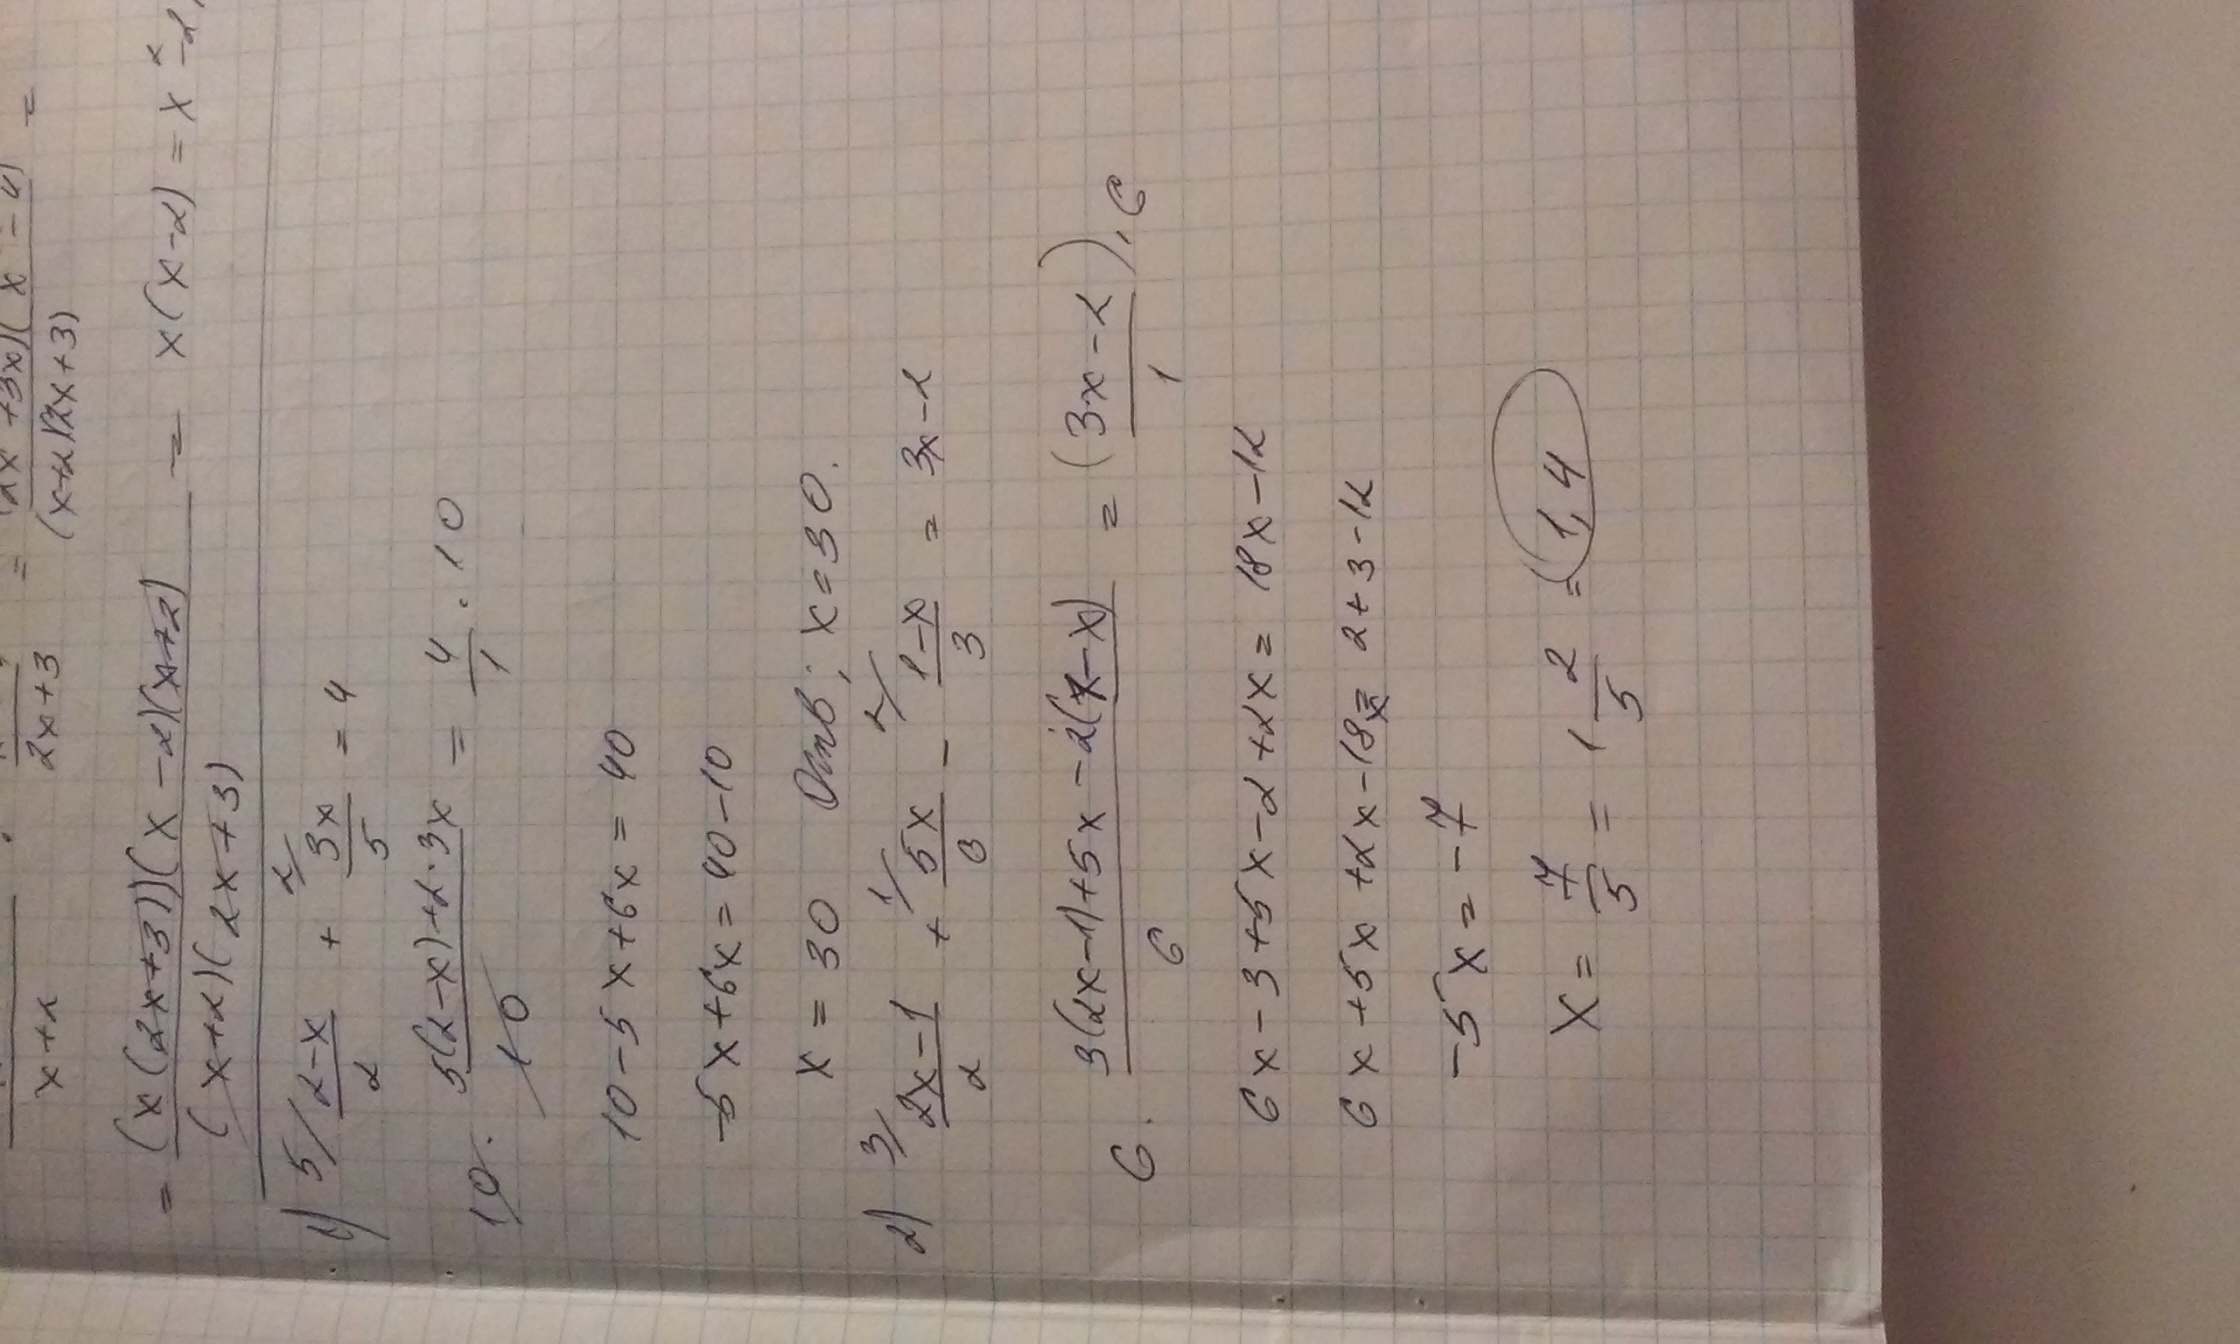 2x + 3x)(x - 4) =
x+2 2x+3 = (x+2)(2x+3)
= (x(2x+3))(x-2)(x+2) = x(x-2) = x² - 2
(x+2)(2x+3)
1) 5/ 2-x/2 + 2/ 3x/5 = 4
10 · 5(2-x)+2·3x/10 = 4/1 · 10
10-5x+6x=40
-5x+6x=40-10
x=30 Отв; x=30.
2) 3/ 2x-1/2 + 1/ 5x/6 - 2/ 1-x/3 = 3x-2
6 · 3(2x-1)+5x-2(1-x)/6 = (3x-2/1)·6
6x-3+5x-2+2x=18x-12
6x+5x+2x-18x=2+3-12
-5x=-7
x=7/5=1 2/5=1,4